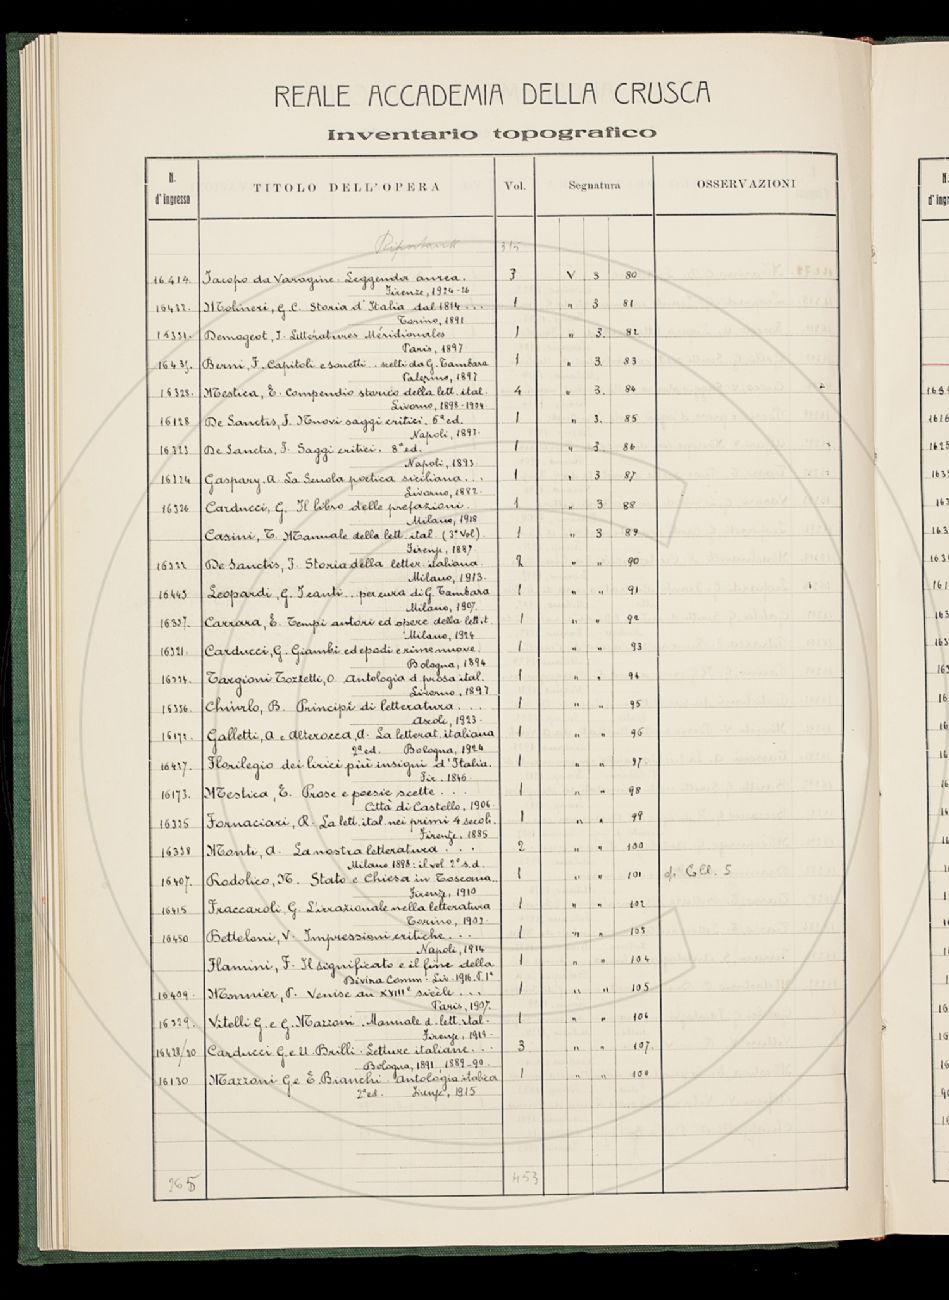 REALE ACCADEMIA DELLA CRUSCA
Inventario topografico
N. d'ingresso TITOLO DELL'OPERA Vol. Segnatura OSSERVAZIONI
Riportansi 315
16414. Jacopo da Varagine. Leggenda aurea. 3 V 3 80
Firenze, 1924-26
16432. Molineri, G. C. Storia d'Italia dal 1814 ... 1 " 3 81
Torino, 1891
Demogeot J. Littératures Méridionales 1 " 3. 82
Paris, 1897
16435. Berni, F. Capitoli e sonetti.. scelti da G. Tambara 1 " 3. 83
Palermo, 1897
16328. Mestica, E. Compendio storico della lett. ital. 4 " 3. 84
Livorno, 1898-1904
16128 De Sanctis, F. Nuovi saggi critici. 6ª ed. 1 " 3. 85
Napoli, 1893.
16323 De Sanctis, F. Saggi critici. 8ª ed. 1 " 3. 86
Napoli, 1893.
16124 Gaspary. A. La Scuola poetica siciliana ... 1 " 3 87
Livorno, 1882.
16326 Carducci, G. Il libro delle prefazioni. 1 " 3 88
Milano, 1918
Casini, T. Manuale della lett. ital. (3º Vol) 1 " 3 89
Firenze, 1887.
16322 De Sanctis, F. Storia della letter. italiana. 2 " " 90
Milano, 1913.
16443 Leopardi, G. I canti... per cura di G. Tambara 1 " " 91
Milano, 1907.
16327. Carrara, E. Tempi autori ed opere della lett. it. 1 " " 92
Milano, 1924
16321. Carducci, G. Giambi ed epodi e rime nuove. 1 " " 93
Bologna, 1894
16324. Targioni Tozzetti, O. Antologia d. prosa ital. 1 " " 94
Livorno, 1897
16336. Chiurlo, B. Principi di letteratura .... 1 " " 95
Ascoli, 1923.
16172. Galletti, A. e Alterocca, A. La letterat. italiana 1 " " 96
2ª ed. Bologna, 1924
16437. Florilegio dei lirici più insigni d'Italia. 1 " " 97
Fir. 1846.
16173. Mestica, E. Prose e poesie scelte ... 1 " " 98
Città di Castello, 1906.
16325 Fornaciari, R. La lett. ital. nei primi 4 secoli. 1 " " 99
Firenze, 1885
16338 Monti, A. La nostra letteratura ... 2 " " 100
Milano 1898: il vol. 2º s.d.
16407. Rodolico, N. Stato e Chiesa in Toscana.. 1 " " 101
Firenze, 1910
16415 Fraccaroli, G. L'irrazionale nella letteratura 1 " " 102
Torino, 1903.
16450 Betteloni, V. Impressioni critiche ... 1 " " 103
Napoli, 1914
Flamini, F. Il significato e il fine della 1 " " 104
Divina Comm. Liv. 1916. P. Iª
16409. Monnier, P. Venise au XVIIIe siècle ... 1 " " 105
Paris, 1907.
16329. Vitelli G. e G. Mazzoni. Manuale d. lett. ital. 1 " " 106
Firenze, 1914.
16428/30 Carducci G. e U. Brilli. Letture italiane. .. 3 " " 107.
Bologna, 1891. 1889-90.
16130 Mazzoni G. e E. Bianchi. Antologia italica 1 " " 108
2ª ed. Firenze, 1915
265 453